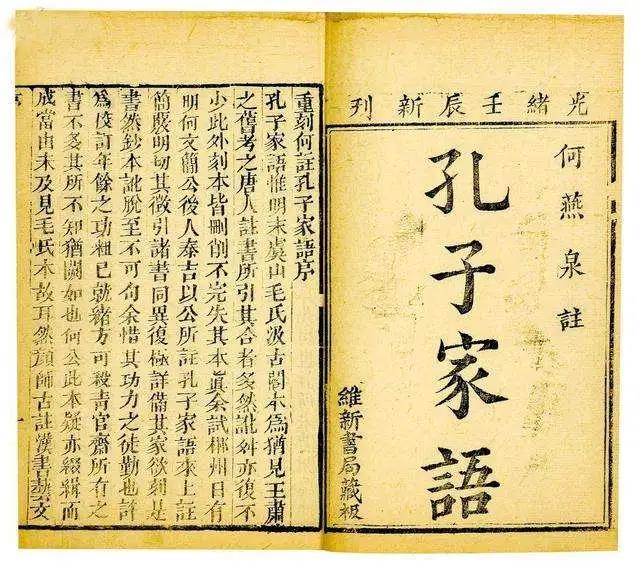 光緒壬辰新刊
何燕泉註
孔子家語
維新書局藏板
重刻何註孔子家語序
孔子家語惟明末虞山毛氏汲古閣本爲猶見王肅
之舊考之唐人註書所引其合者多然訛舛亦復不
少此外刻本皆刪削不完失其本眞余試郴州日有
明何文簡公後人泰吉以公所註孔子家語來上註
簡嚴明切其徵引諸書同異復極詳備其家欲刻是
書然鈔本訛脫至不可句余惜其功力之徒勤也許
爲攷訂年餘之功粗已就緒方可殺青官齋所有之
書不多其所不知猶闕如也何公此本疑亦綴緝而
成當由未及見毛氏本故耳然顏師古註漢書藝文
序
一